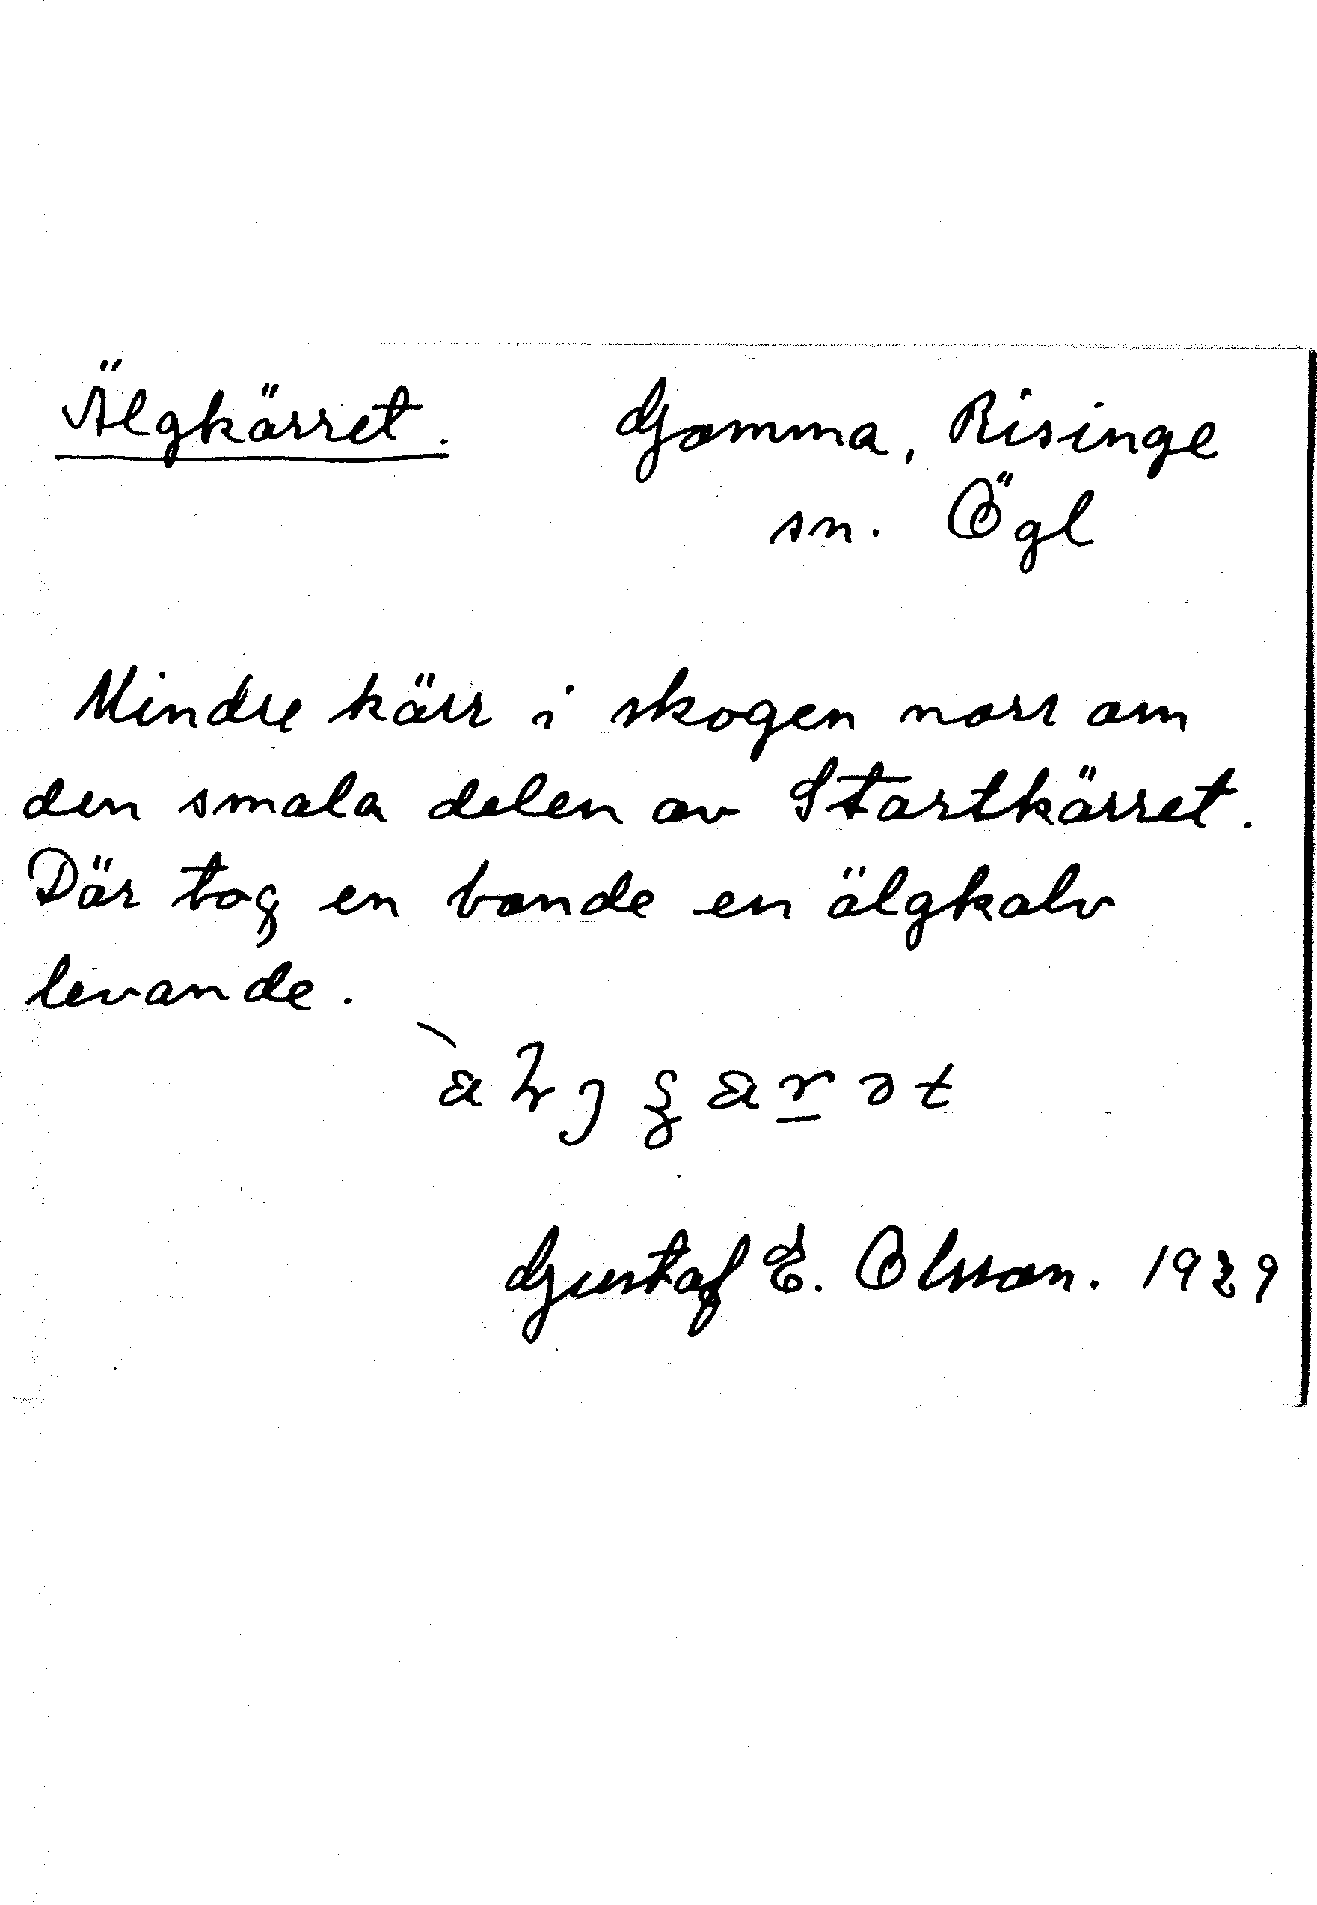 Älgkärret. Gomma, Risinge
sn. Ögl
Mindre kärr i skogen norr om
den smala delen av Startkärret.
Där tog en bonde en älgkalv
levande.
Gustaf E. Olsson. 1929